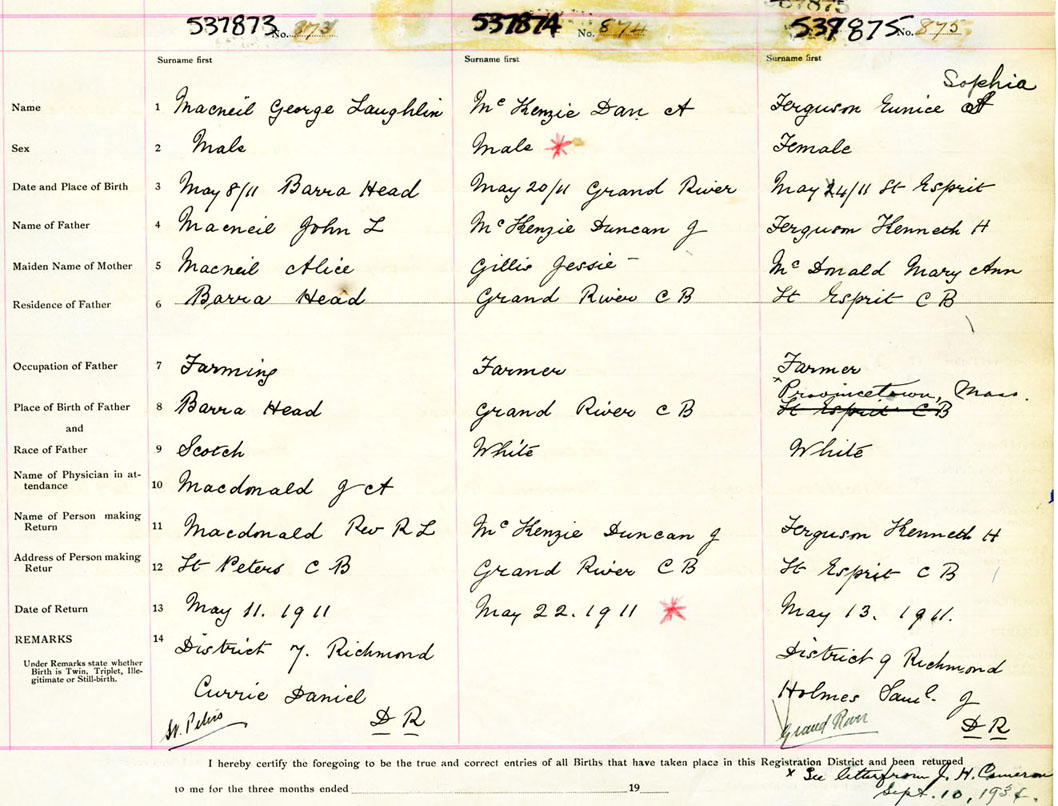 537873 No. 873 537874 No. 874 537875 No. 875
Surname first Surname first Surname first
Sophia
Name 1 Macneil George Laughlin Mc Kenzie Dan A Ferguson Eunice
Sex 2 Male Male Female
Date and Place of Birth 3 May 8/11 Barra Head May 20/11 Grand River May 24/11 St Esprit
Name of Father 4 Macneil John L Mc Kenzie Duncan J Ferguson Kenneth H
Maiden Name of Mother 5 Macneil Alice Gillis Jessie Mc Donald Mary Ann
Residence of Father 6 Barra Head Grand River C B St Esprit C B
Occupation of Father 7 Farming Farmer Farmer
x Provincetown, Mass.
Place of Birth of Father 8 Barra Head Grand River C B St Esprit C B
and
Race of Father 9 Scotch White White
Name of Physician in at-
tendance 10 Macdonald J A
Name of Person making
Return 11 Macdonald Rev R L Mc Kenzie Duncan J Ferguson Kenneth H
Address of Person making
Retur 12 St Peters C B Grand River C B St Esprit C B
Date of Return 13 May 11. 1911 May 22. 1911 May 13. 1911.
REMARKS 14 District 7. Richmond District 9 Richmond
Under Remarks state whether
Birth is Twin, Triplet, Ille-
gitimate or Still-birth.
Currie Daniel Holmes Saml. J
St. Peters D R Grand River D R
I hereby certify the foregoing to be the true and correct entries of all Births that have taken place in this Registration District and been returned
x See letter from J. H. Cameron
to me for the three months ended 19 Sept. 10, 193